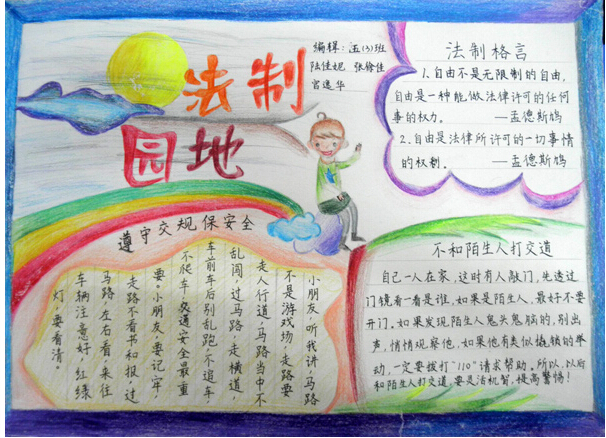 法制
园地
编辑：五(3)班
陆佳妮
宫逸华
法制格言
1.自由不是无限制的自由，
自由是一种能做法律许可的任何
事的权力。 ——孟德斯鸠
2.自由是法律所许可的一切事情
的权利。 ——孟德斯鸠
遵守交规保安全
小朋友，听我讲，马路
不是游戏场，走路要
走人行道，马路当中不
乱闯，过马路，走横道，
车前车后别乱跑，不追车
不爬车，交通安全最重
要。小朋友，要记牢
走路不看书和报，过
马路，左右看，来往
车辆注意好，红绿
灯，要看清。
不和陌生人打交道
自己一人在家，这时有人敲门，先透过
门镜看一看是谁，如果是陌生人，最好不要
开门。如果发现陌生人鬼头鬼脑的，别出
声，悄悄观察他，如果他有类似撬锁的举
动，一定要拨打"110"请求帮助。所以，以后
和陌生人打交道，要灵活机智，提高警惕！